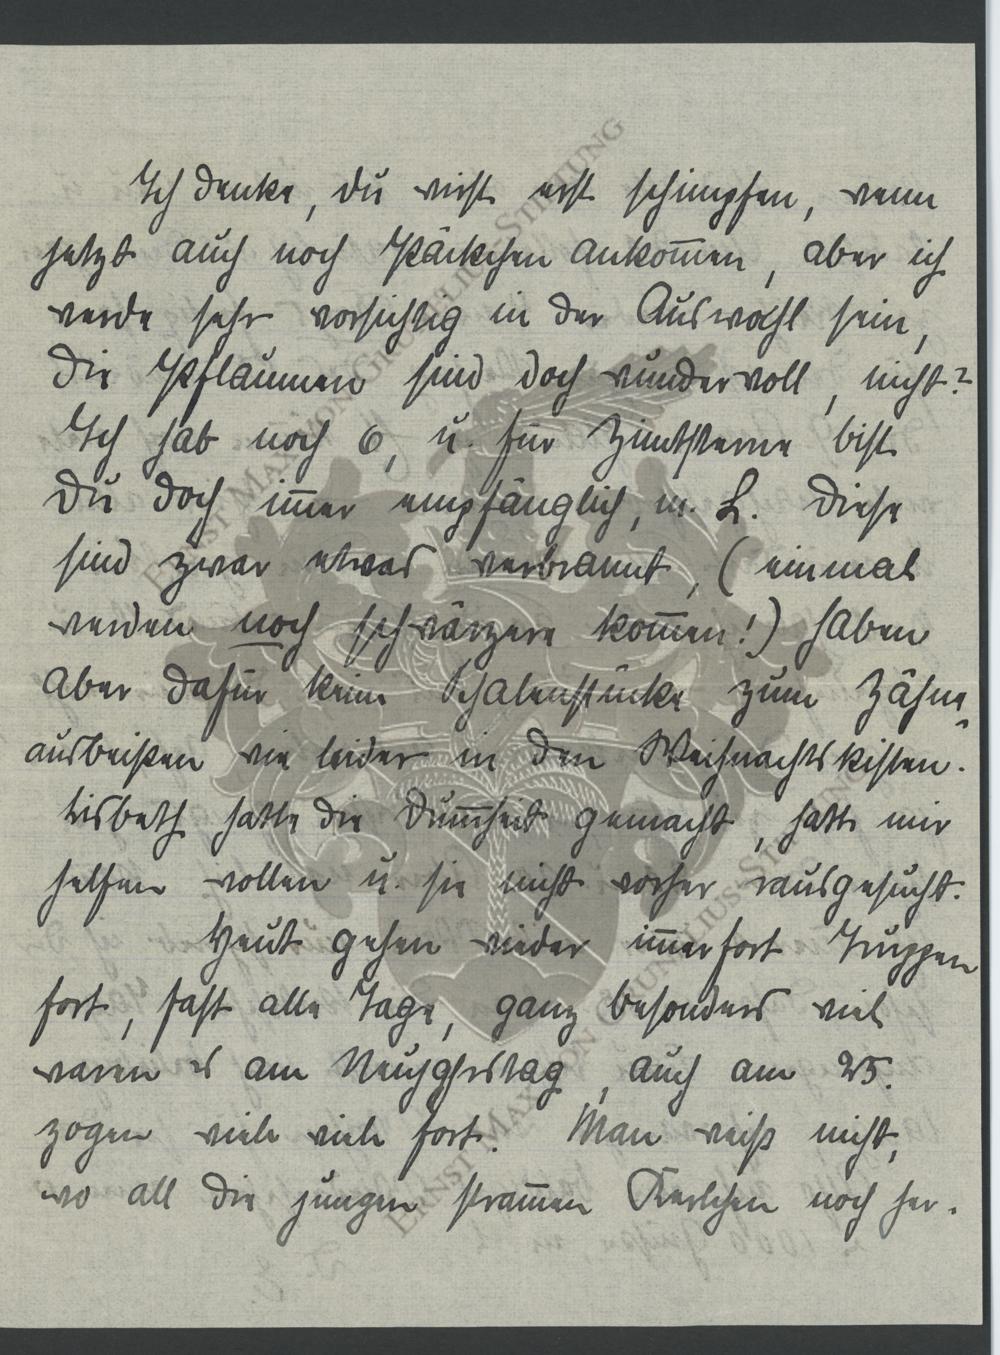 Ich denke, du wirst erst schimpfen, wenn
jetzt auch noch Päckchen ankom̅en, aber ich
werde sehr vorsichtig in der Auswahl sein,
die Pflaumen sind doch wundervoll, nicht?
Ich hab noch 6, u. für Zimtsterne bist
Du doch im̅er empfänglich, m. L. Diese
sind zwar etwas verbrannt, (einmal
werden noch schwärzere kom̅en!) haben
aber dafür keine Schalenstücke zum Zähne
ausbeißen wie leider in den Weihnachtskisten.
Lisbeth hatte die Dum̅heit gemacht, hatte mir
helfen wollen u. sie nicht vorher rausgesucht.
Heut gehen wieder im̅erfort Truppen
fort, fast alle Tage, ganz besonders viel
waren es am Neujahrstag, auch am 25.
zogen viele viele fort. Man weiß nicht,
wo all die jungen stram̅en Kerlchen noch her-
ERNST MAX VON GRUNELIUS-STIFTUNG
ERNST MAX VON GRUNELIUS-STIFTUNG